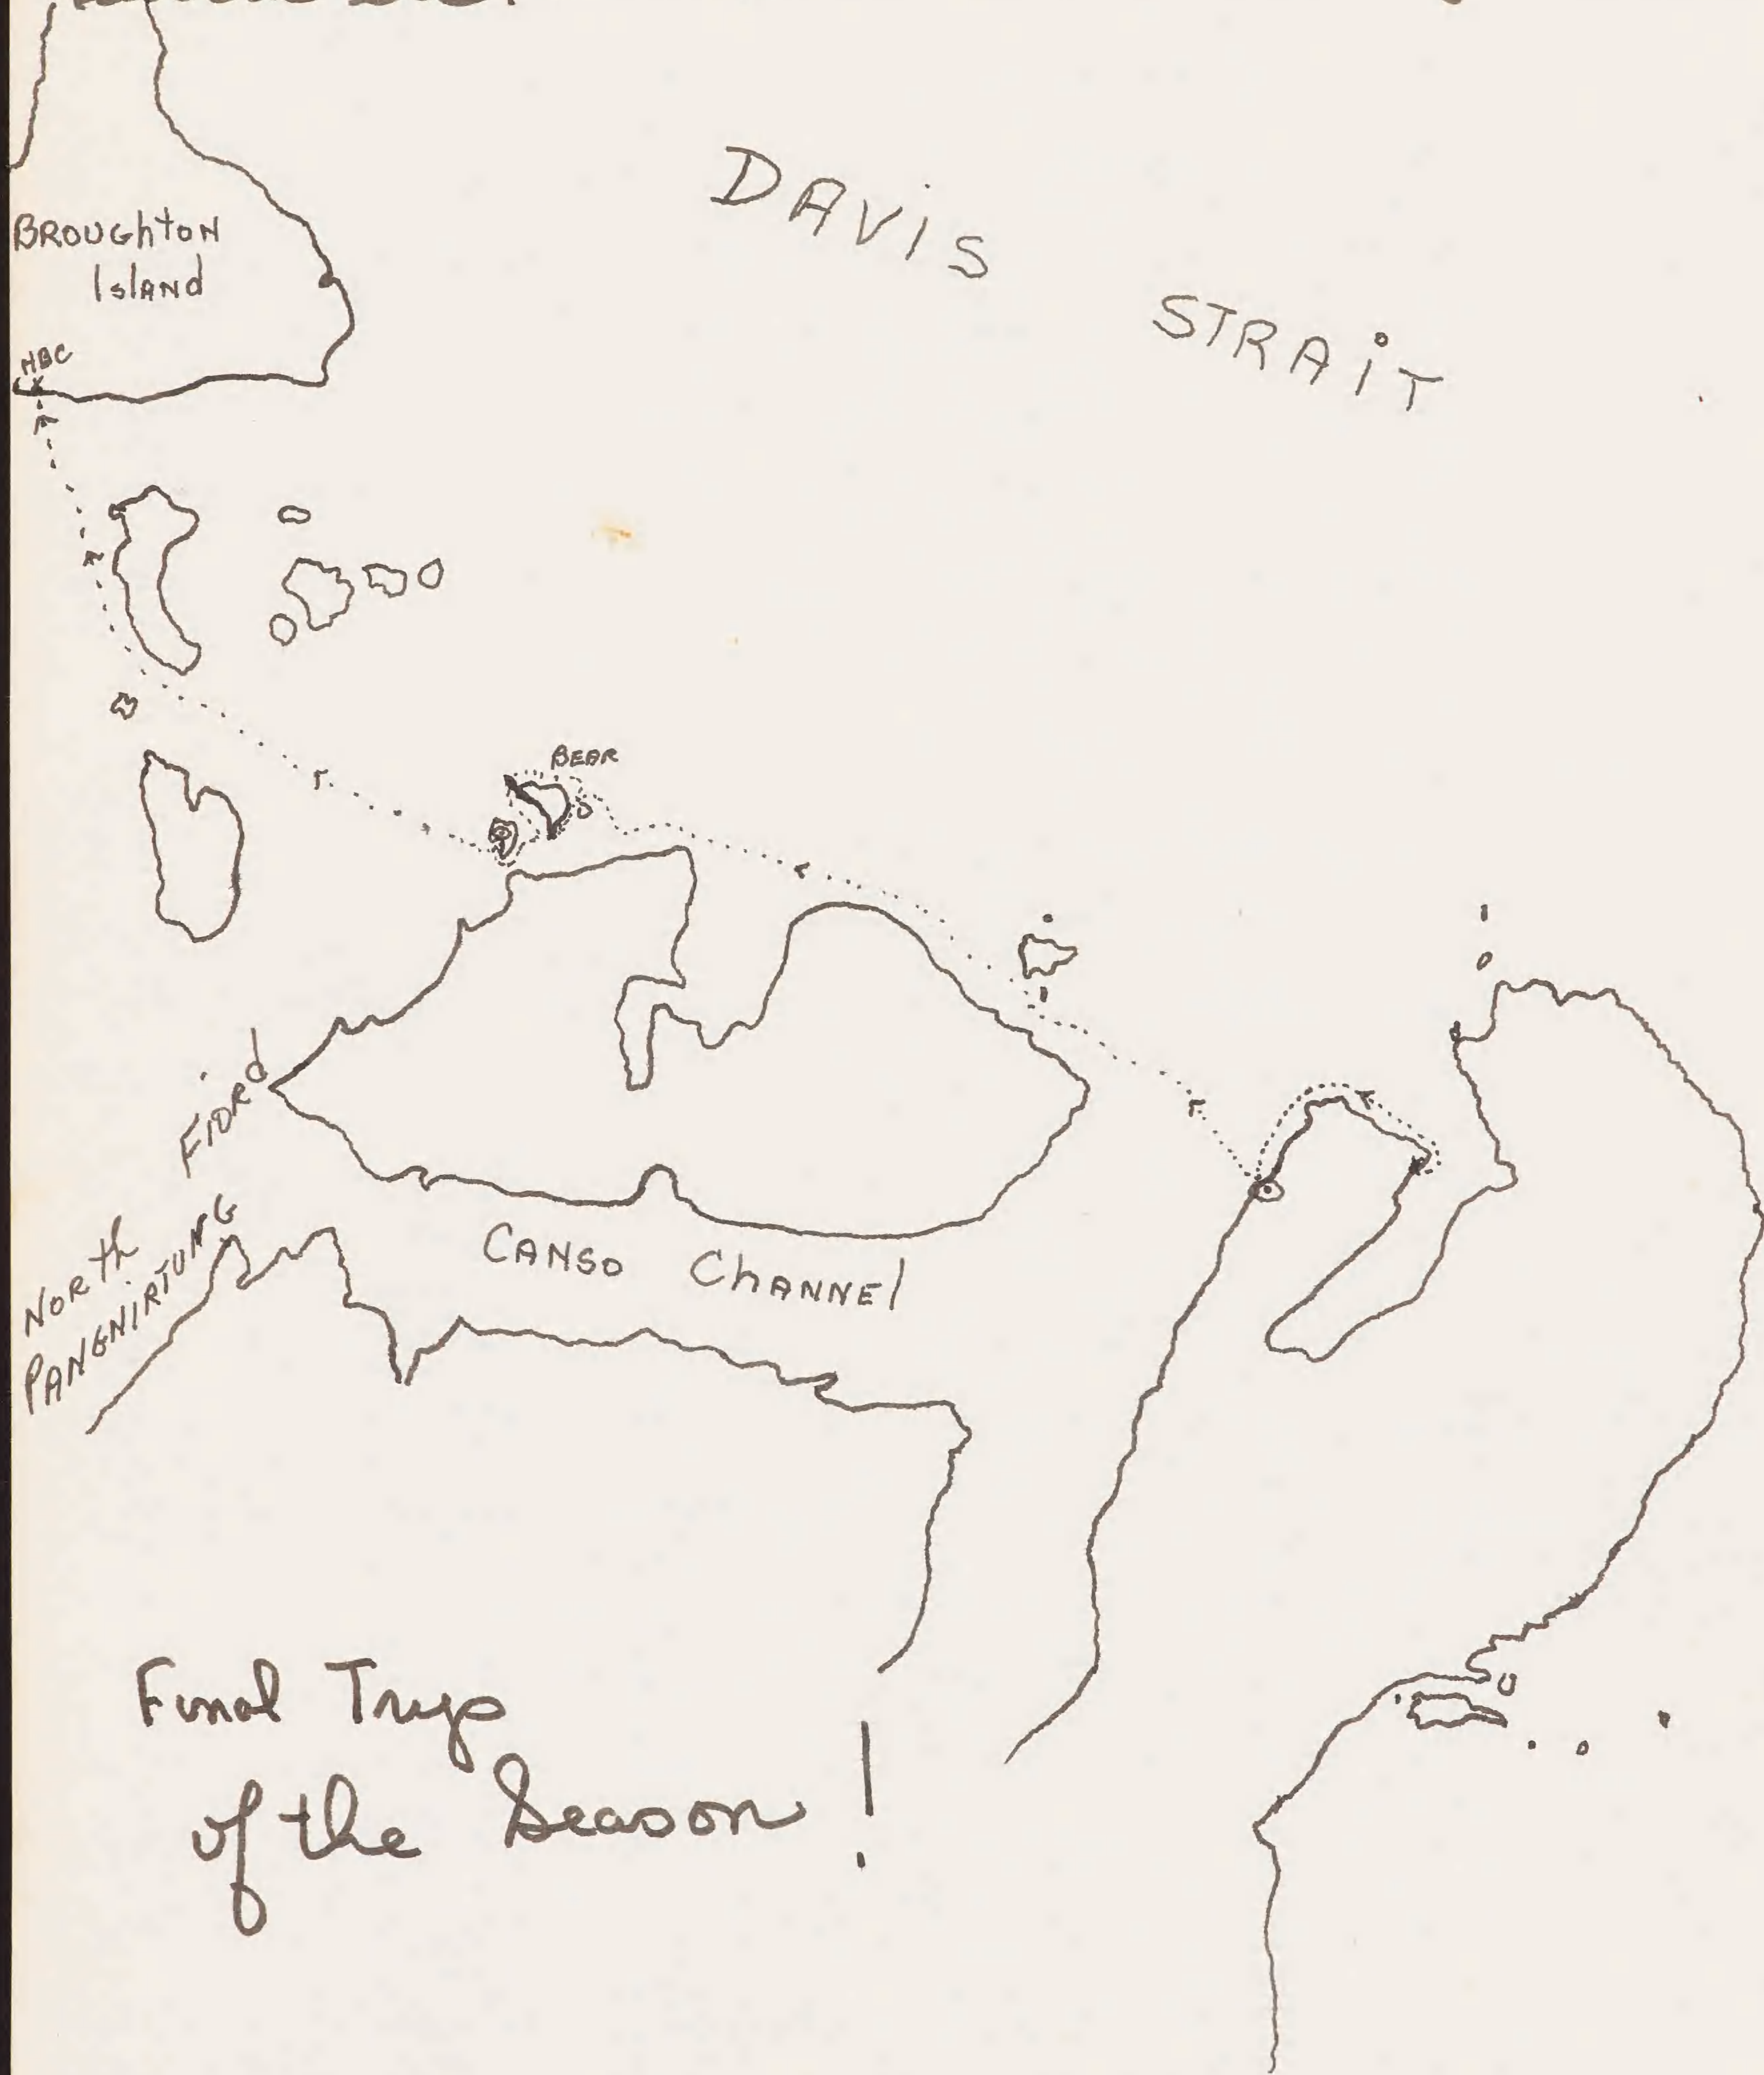 DAVIS STRAIT
BROUGHTON
ISLAND
HBC
BEAR
FIORD
NORTH
PANGNIRTUNG
CANSO CHANNEL
Final Trip
of the Season!